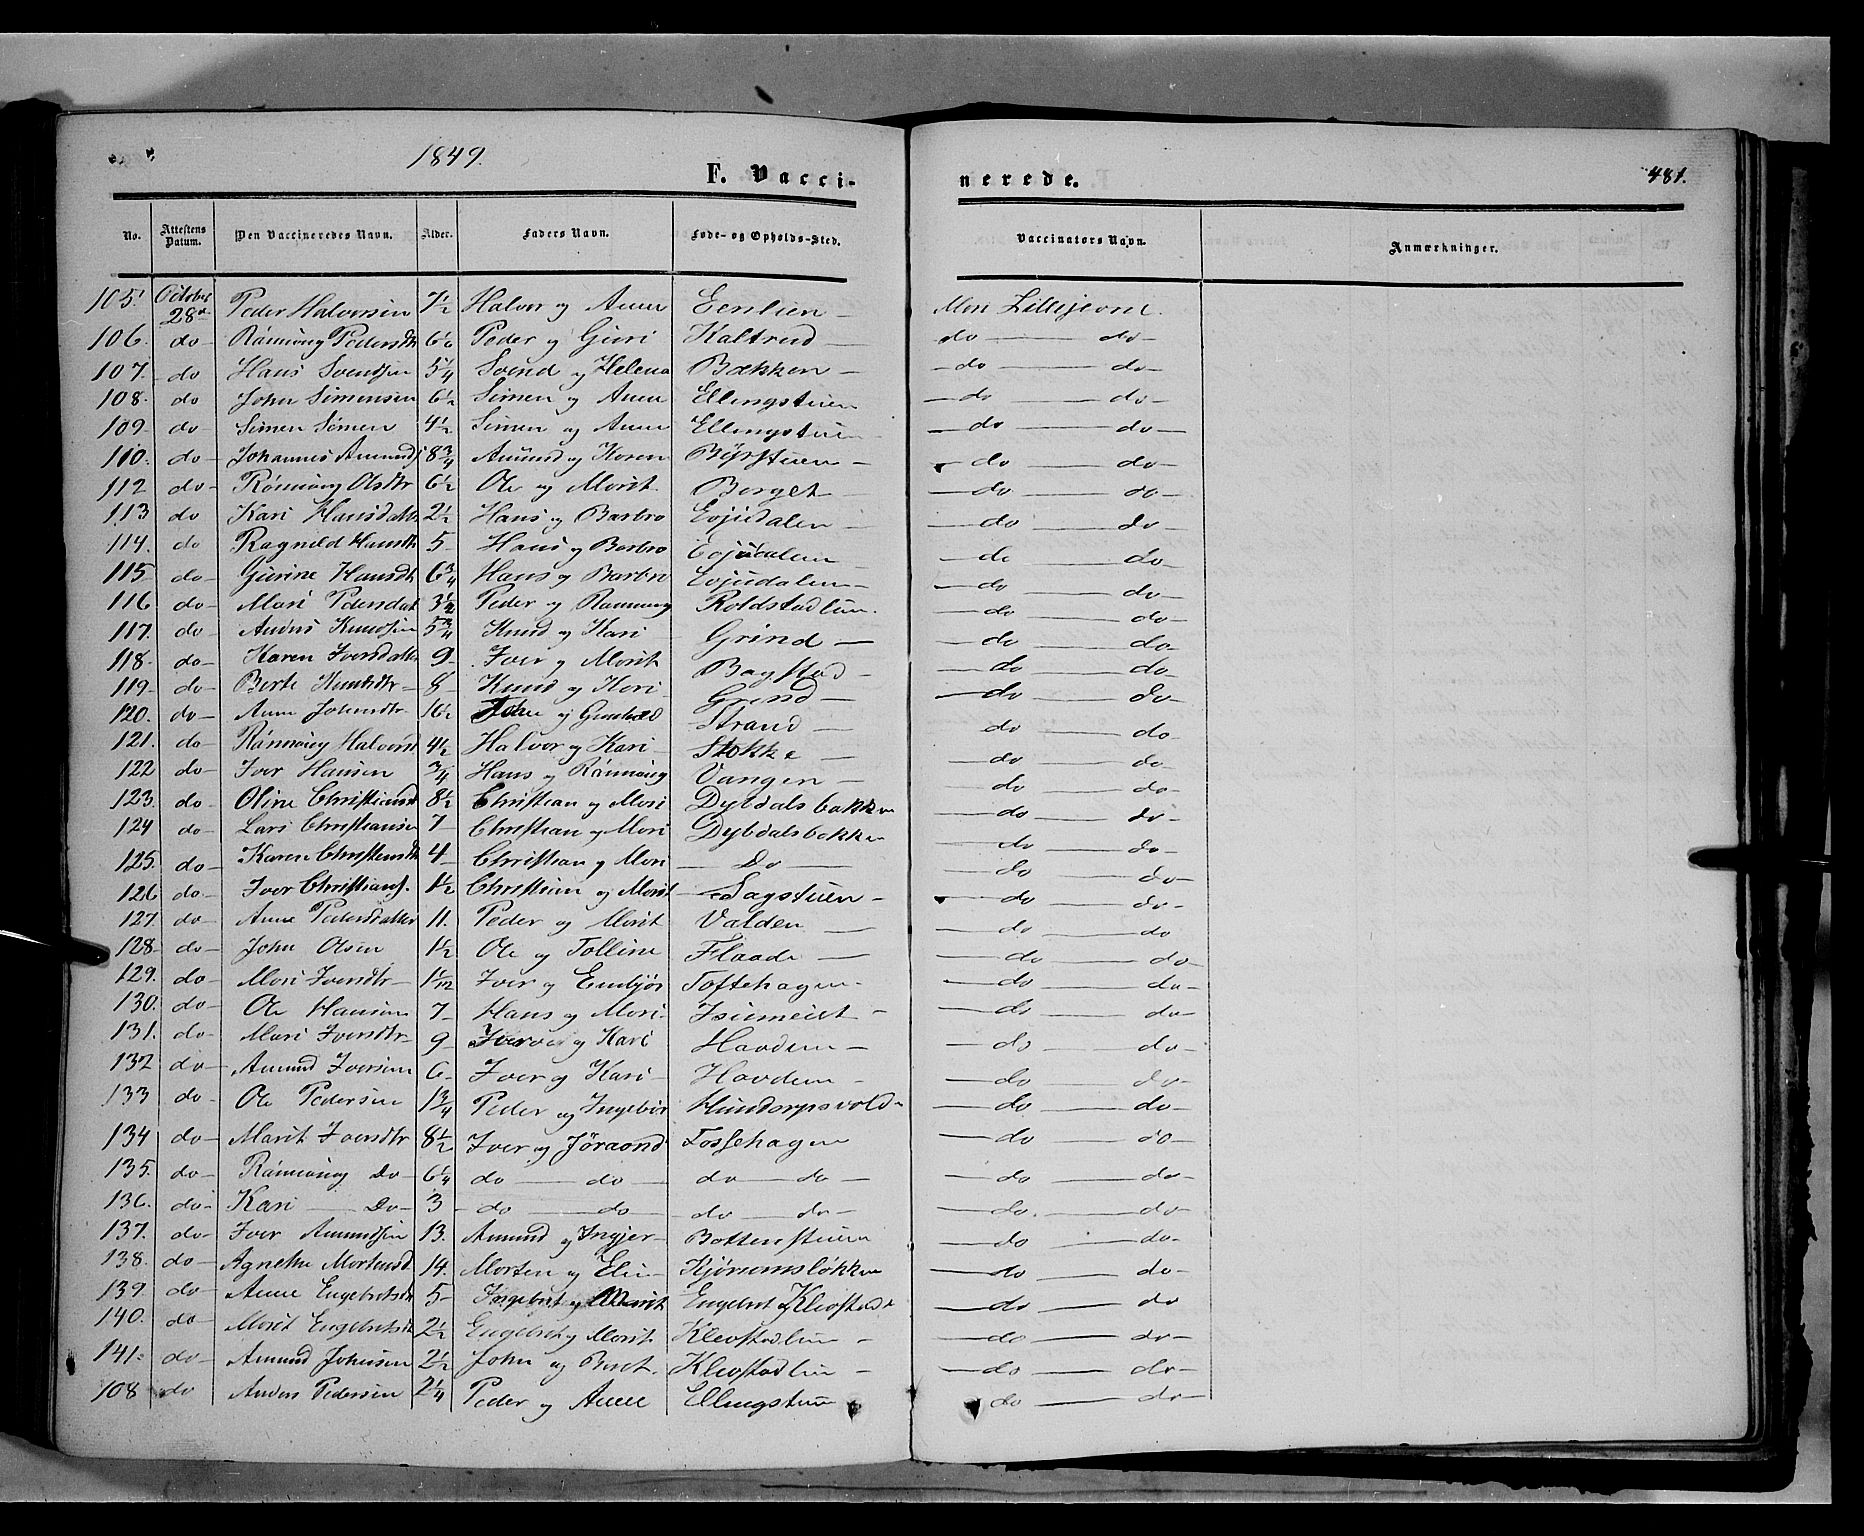 1849.
F. Vacci-
nerede.
481.
No. Attestens Datum. Den Vaccineredes Navn. Alder. Faders Navn. Føde- og Opholds-Sted. Vaccinators Navn. Anmærkninger.
105. October 28de Peder Halvorsen 7½ Halvor og Anne
106. do Rønnoug Pedersdtr Peder og Guri Kaltrud — do — do
107. do Hans Svendsen 5¼ Svend og Helena Bækken — do — do
108. do John Simensen 6½ Simen og Anne Ellingstuen — do — do
109. do Simen Simen 4½ Simen og Anne Ellingstuen — do — do
110. do Johannes Amunds 8¾ Amund og Karen Byrstuen — do — do
112 do Rønnoug Olsdtr 6½ Ole og Marit Berget — do — do
113 do Kari Hansdatter 2½ Hans og Barbro Evjudalen — do — do
114. do Ragnild Hansdtr 5 Hans og Barbro Evjudalen — do — do
115 do Gurine Hansdtr 6¾ Hans og Barbro Evjudalen — do — do
116 do Mari Pedersdat 3½ Peder og Rønnoug — do — do
117. do Anders Knudsen 5¾ Knud og Kari Grind — do — do
118. do Karen Iversdatter 9 Iver og Marit Bagstad — do — do
119 do Berte Knudsdtr 8 Knud og Kari Grind — do — do
120. do Anne Johnsdtr John og Gunhild Strand — do — do
121. do Rønnoug Halvorsd 4½ Halvor og Kari Stokke — do — do
122 do Iver Hansen ¾ Hans og Rønnoug Vangen — do — do
123. do Oline Christiansd 8½ Christian og Mari Dybdalsbakken — do — do
124 do Lars Christiansen 7 Christian og Mari Dybdalsbakken — do — do
125. do Karen Christiansdtr 4 Christian og Mari — Do — do — do
126 do Iver Christians. 1½ Christian og Marit Sagstuen — do — do
127. do Anne Pedersdatter 11. Peder og Marit Valden — do — do
128 do John Olsen 1½ Ole og Tolline Flaade — do — do
129. do Mari Iversdtr Iver og Toftehagen — do — do
130. do Ole Hansen 7 Hans og Mari — do — do
131. do Mari Iversdtr 9 Iver og Kari Hovden — do — do
132 do Amund Iversen 6 Iver og Kari Hovden — do — do
133 do Ole Pedersen 1¾ Peder og Ingebor Hundorpsvold — do — do
134 do Marit Iversdtr 8½ Iver og Jøraand Tossehagen — do — do
135. do Rønnoug Do 6¼ do — do do — do — do — do
136. do Kari — Do 3 do — do do — do — do — do
137. do Iver Amundsen 13. Amund og Ingjer Bottenstuen — do — do
138. do Agnethe Mortensd 14. Morten og Elin Kjørumsløkken — do — do
139. do Anne Engebretsdtr 5 Ingebret og Marit Engebret Klevstad — do — do
140. do Marit Engebretsdtr 2½ Engebret og Marit Klevstadlien — do — do
141. do Amund Johnsen 2½ John og Beret Klevstadlien — do — do
108 do Anders Pedersen 2¼ Peder og Anne Ellingstuen — do — do